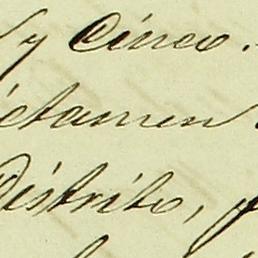 y Cinco.
ictamen
Distrito,